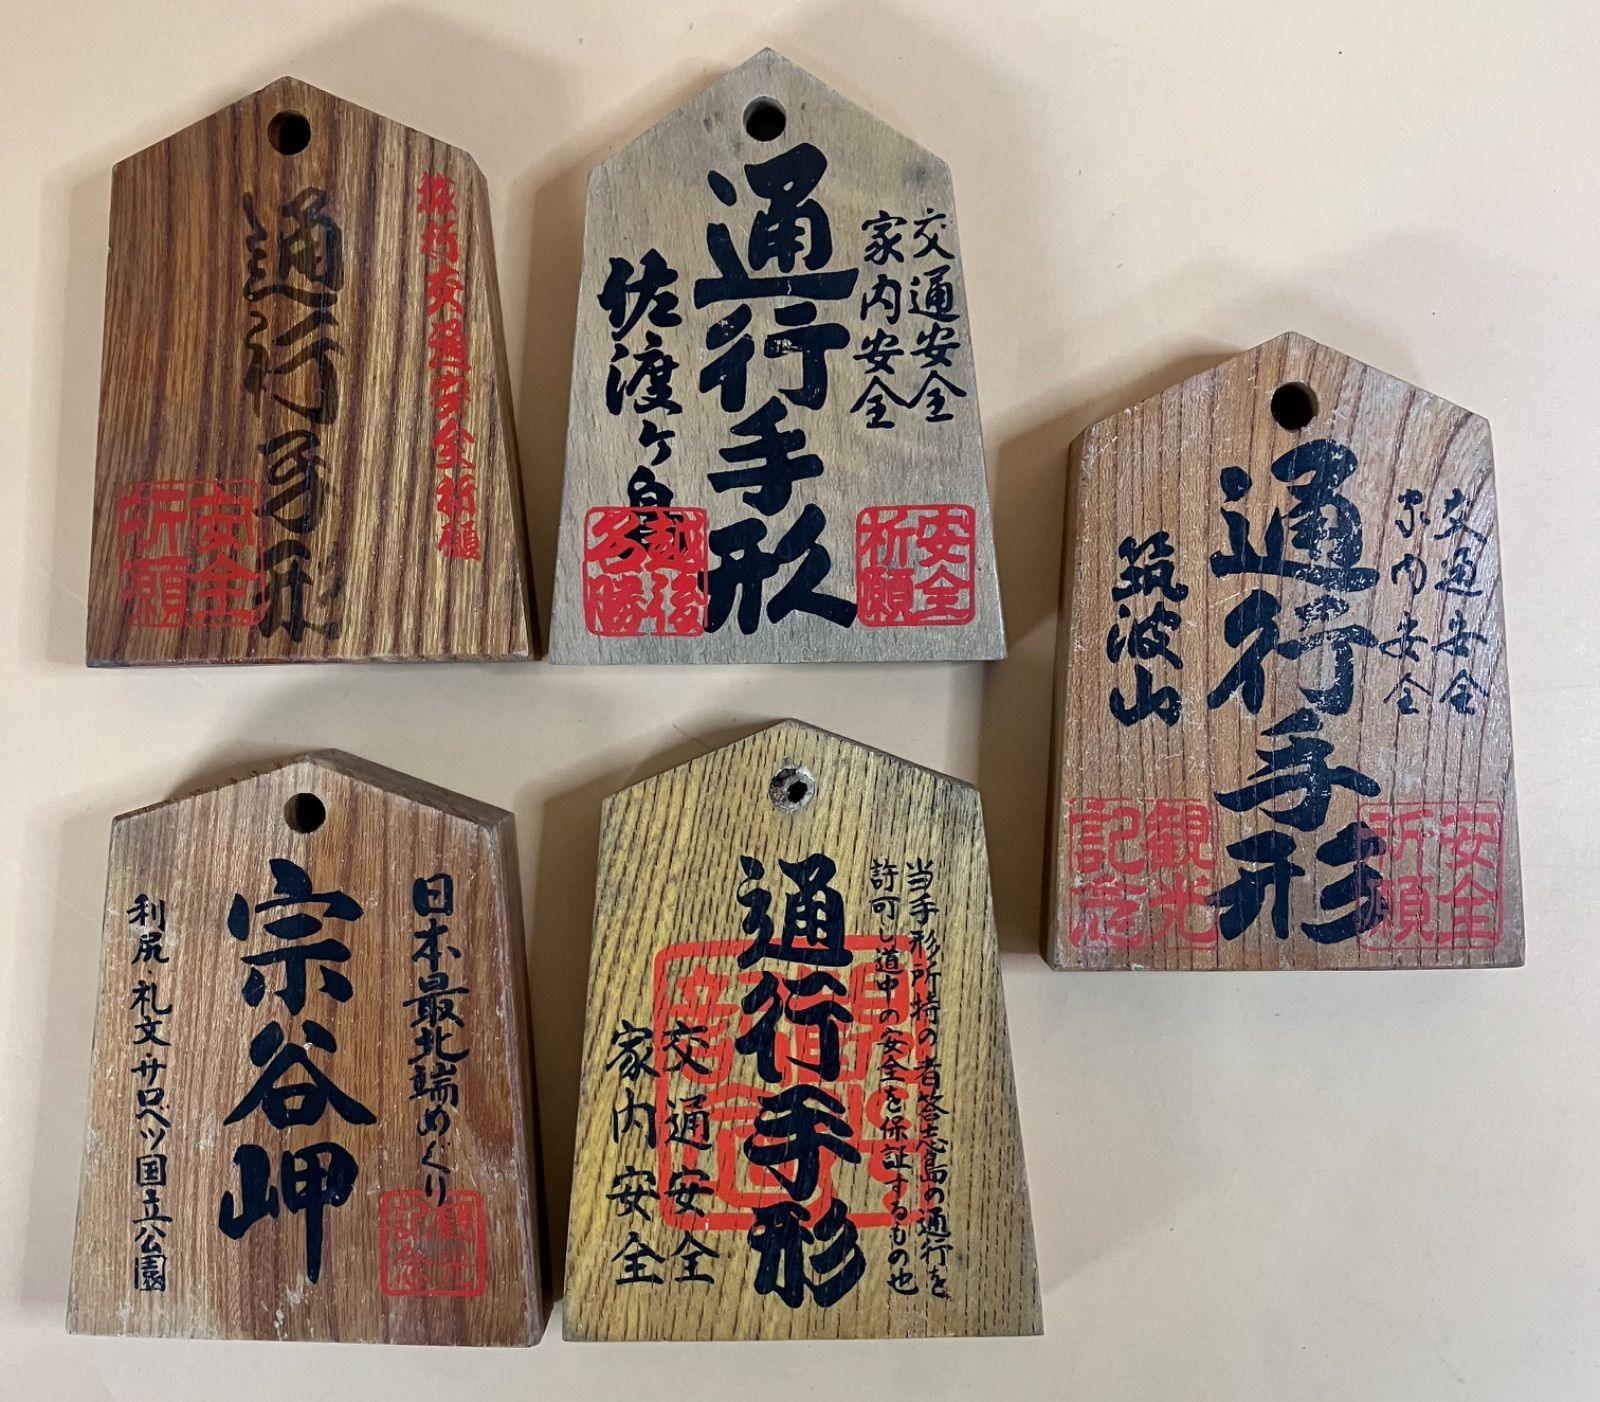 旅行交通安全祈願
通行手形
安全
祈願
交通安全
家内安全
通行手形
佐渡ヶ島
安全
祈願
越後
名勝
交通安全
家内安全
通行手形
筑波山
安全
祈願
観光
記念
日本最北端めぐり
宗谷岬
利尻・礼文・サロベツ国立公園
観光
記念
当手形所持の者答志島の通行を
許可し道中の安全を保証するもの也
通行手形
交通安全
家内安全